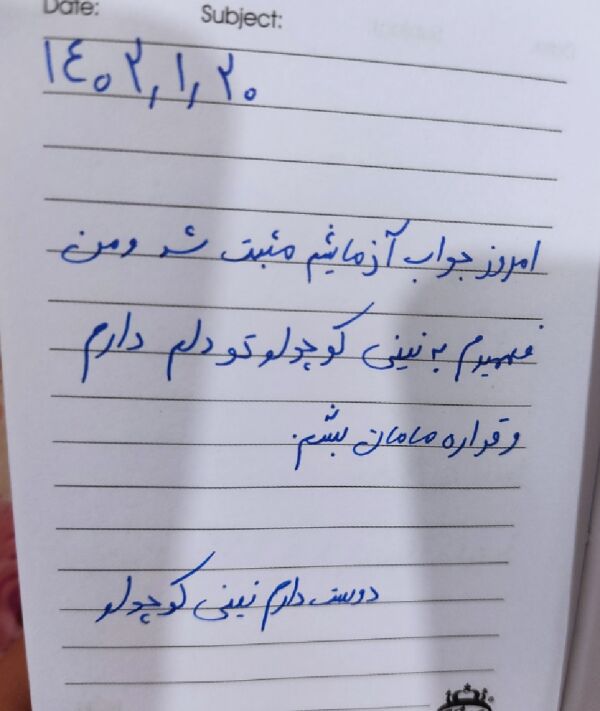 Date: Subject:
۱۴۰۲,۱,۲۰
امروز جواب آزمایشم مثبت شد و من
فهمیدم یه نینی کوچولو تو دلم دارم
و قراره مامان بشم.
دوست دارم نینی کوچولو